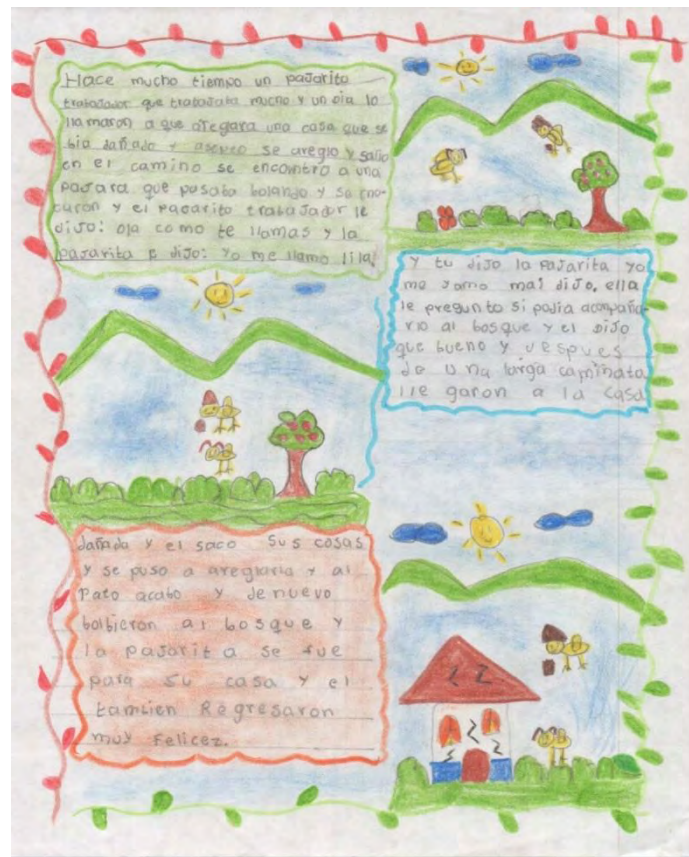 Hace mucho tiempo un pajarito
trabajador que trabajaba mucho y un dia lo
llamaron a que aregara una casa que se
bia dañado y se areglo y salio
en el camino se encontro a una
pajara que pasaba bolando y se cho-
caron y el pajarito trabajador le
dijo: ola como te llamas y la
pajarita e dijo: Yo me llamo lila!
Y tu dijo la pajarita yo
me yamo mai dijo. ella
le pregunto si podia acompaña-
rlo al bosque y el dijo
que bueno y despues
de una larga caminata
lle garon a la casa
dañada y el saco sus cosas
y se puso a areglarla y al
rato acabo y de nuevo
bolbieron al bosque y
la pajarita se fue
para su casa y el
tambien Regresaron
muy Felicez.